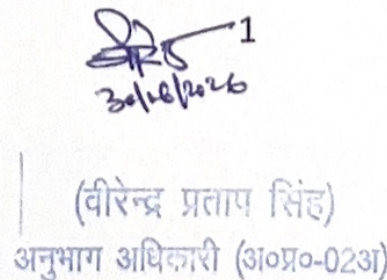 1
30/06/2026
(वीरेन्द्र प्रताप सिंह)
अनुभाग अधिकारी (अ०प्र०-02अ)